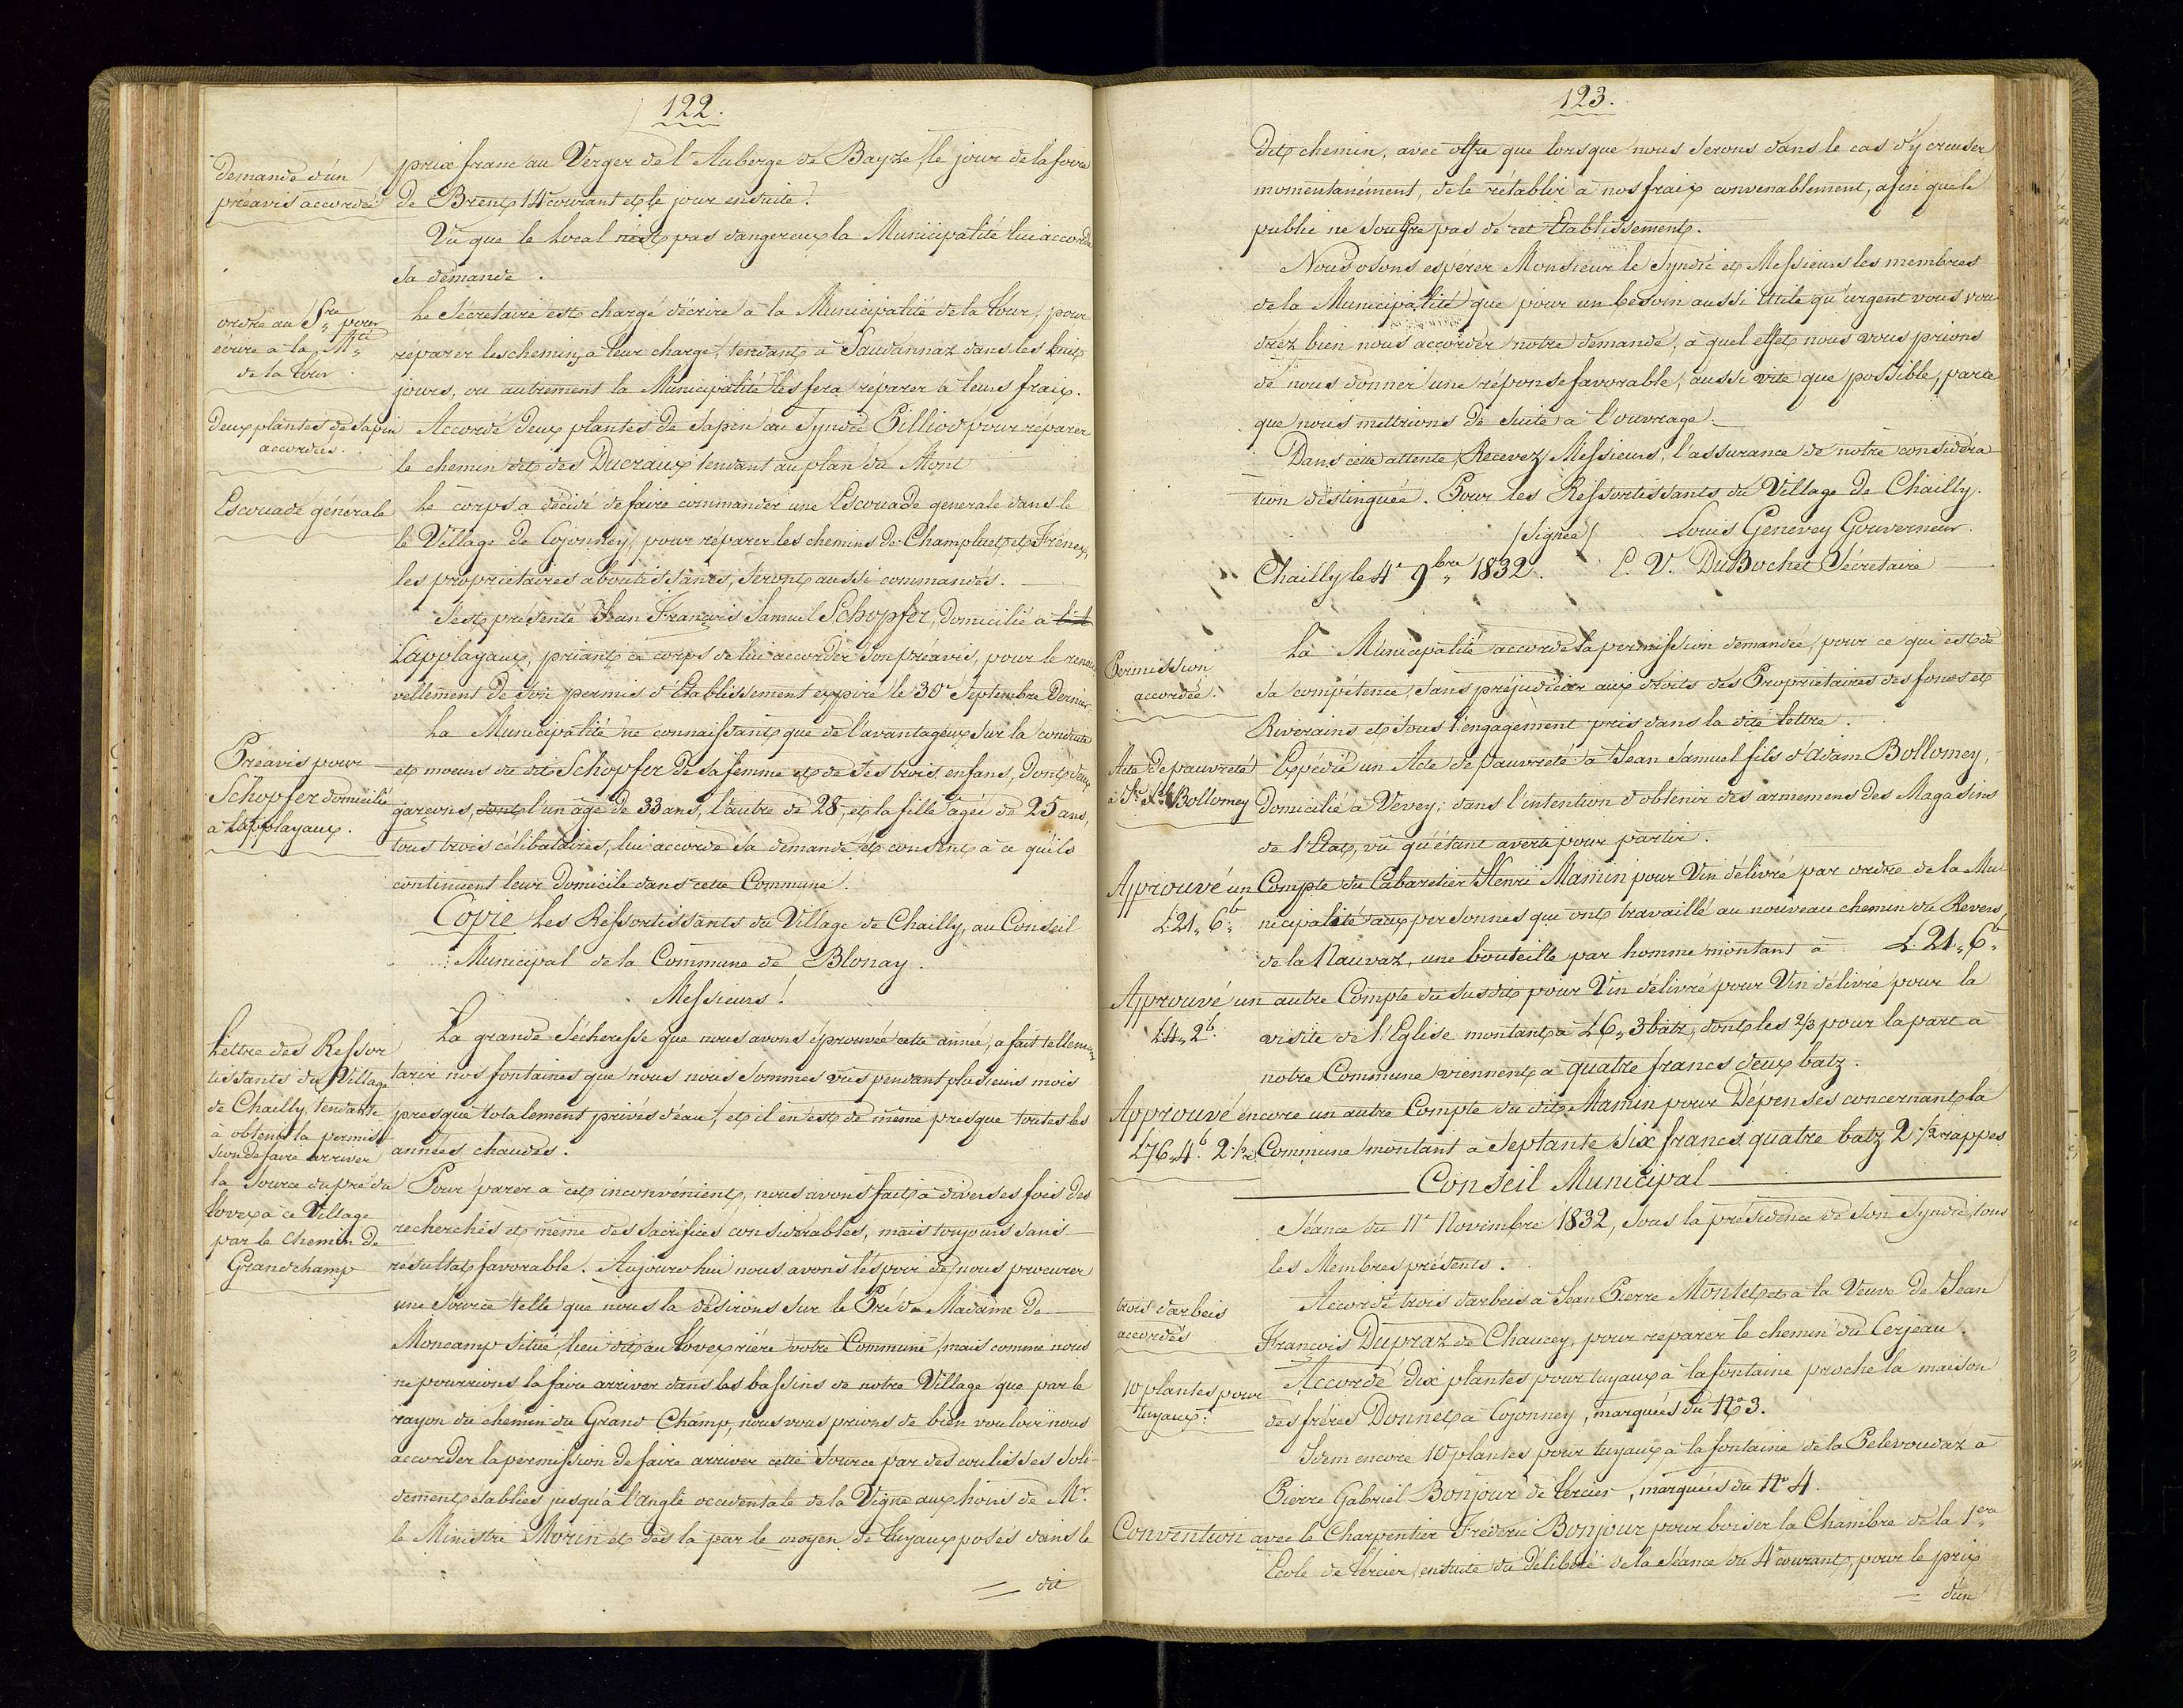 122.
demande d'un
préavis accordé
prix franc au Verger de l'Auberge de Bayze, le jour de la foire
de Brent 14e courant et le jour ensuite.
Vu que le local n'est pas dangereux la Municipalité lui accorde
sa demande.
ordre au Sre pour
écrire à la Mté
de la Tour.
Le Sécretaire est chargé d'écrire à la Municipalité de la Tour, pour
réparer les chemins, à leur charge, tendant à Saudannaz dans les huit
jours, ou autrement la Municipalité les fera réparer à leurs fraix.
Deux plantes de Sapin
accordées.
Accordé deux plantes de Sapin au Syndic Pilliod pour réparer
le chemin dit des Ducraux tendant au plan du Mont
Escouade générale
Le corps a décidé de faire commander une Escouade générale dans le
le Village de Cojonney, pour réparer les chemins de Champluet et Freney,
les propriétaires aboutissants, seront aussi commandés.
S'est présenté Jean François Samuel Schopfer, domicilié à
Lapplayaux, priant ce corps de lui accorder son préavis, pour le renou
vellement de son permis d'Etablissement expiré le 30e Septembre dernier.
Préavis pour
Schopfer domicilié
a Lapplayaux.
La Municipalité ne connaissant que de l'avantageux sur la conduite
et moeurs du dit Schopfer de sa femme et de ses trois enfans, dont deux
garçons, dont l'un âgé de 33 ans, l'autre de 28, et la fille agée de 25 ans,
tous trois célibataires, lui accorde sa demande et consent à ce qu'ils
continuent leur domicile dans cette Commune.
Copie Les Ressortissants du Village de Chailly, au Conseil
Municipal de la Commune de Blonay.
Messieurs!
Lettre des Ressor
tissants du Village
de Chailly, tendante
à obtenir la permis
sion de faire arriver
la Source du pré du
Tovex à ce Village
par le chemin de
Grandchamp
La grande Sécheresse que nous avons éprouvée cette année, a fait tellement
tarir nos fontaines que nous nous sommes vus pendant plusieurs mois
presque totalement privés d'eau, et il en est de même presque toutes les
années chaudes.
Pour parer à cet inconvénient, nous avons fait à diverses fois des
recherches et même des sacrifices considérables, mais toujours sans
résultat favorable. Aujourd'hui nous avons l'espoir de nous procurer
une source telle que nous la désirons sur le Pré de Madame de
Moncamp situé, lieu dit au Tovex rière votre Commune, mais comme nous
ne pourrions la faire arriver dans les bassins de notre Village que par le
rayon du chemin du Grand Champ, nous vous prions de bien vouloir nous
accorder la permission de faire arriver cette source par des coulisses soli-
dement établies jusqu'à l'angle occidentale de la Vigne aux hoirs de Mr.
le Ministre Morin et dès là par le moyen de tuyaux posés dans le
dit
123.
dit chemin, avec offre que lorsque nous serons dans le cas d'y creuser
momentanément, de le rétablir à nos fraix convenablement, afin que le
public ne souffre pas de cet Etablissement.
Nous osons esperer Monsieur le Syndic et Messieurs les membres
de la Municipalité que pour un besoin aussi utile qu'urgent vous vou
drez bien nous accorder notre demande, a quel effet nous vous prions
de nous donner une réponse favorable, aussi vite que possible, parce
que nous mettrions de suite a l'ouvrage.
Dans cette attente, Recevez Messieurs, l'assurance de notre considéra
tion distinguée. Pour les Ressortissants du Village de Chailly.
/Signés/ Louis Genevey Gouverneur.
Chailly le 4e 9bre 1832. L. V. DuBochet Sécretaire
Permission
accordée.
La Municipalité accorde la permission demandée, pour ce qui est de
sa compétence, sans préjudicier aux droits des Propriétaires des fonds et
Riverains et sous l'engagement pris dans la dite lettre.
Acte de pauvreté
à Jn Sl Bollomey
Expédié un Acte de pauvreté à Jean Samuel fils d'Adam Bollomey,
domicilié à Vevey; dans l'intention d'obtenir des armemens des Magasins
de l'Etat, vû qu'étant averti pour partir.
Approuvé un Compte du Cabaretier Henri Mamin pour Vin délivré par ordre de la Mu
L 21,, 6b
nicipalité aux personnes qui ont travaillé au nouveau chemin du Revers
de la Nauvaz, une bouteille par homme montant à L. 21,, 6b
Approuvé un autre Compte du susdit pour Vin délivré pour Vin délivré pour la
L 4,, 2b
visite de l'Eglise montant à L 6,, 3 batz, dont les 2/3 pour la part à
notre Commune viennent a quatre francs deux batz.
Approuvé encore un autre Compte du dit Mamin pour Dépenses concernant la
L 76,, 4b 2 1/2 r
Commune montant a Septante Six francs quatre batz 2 1/2 rappes
Conseil Municipal
Séance du 11e Novembre 1832, sous la présidence de son Syndic, tous
les Membres présents.
trois darbeis
accordés
Accordé trois darbeis à Jean Pierre Montet et à la Veuve de Jean
François Dupraz de Chaucey, pour reparer le chemin du Cerjeau.
10 plantes pour
tuyaux:
Accordé dix plantes pour tuyaux à la fontaine proche la maison
des frères Donnet à Cojonney, marquées du No 3.
Idem encore 10 plantes pour tuyaux à la fontaine de la Pelevoudaz à
Pierre Gabriel Bonjour de Tercier, marquées du No 4.
Convention avec le Charpentier Fréderic Bonjour pour boiser la Chambre de la 1ere
Ecole de Tercier, ensuite du délibéré de la Séance du 4e courant, pour le prix
d'un